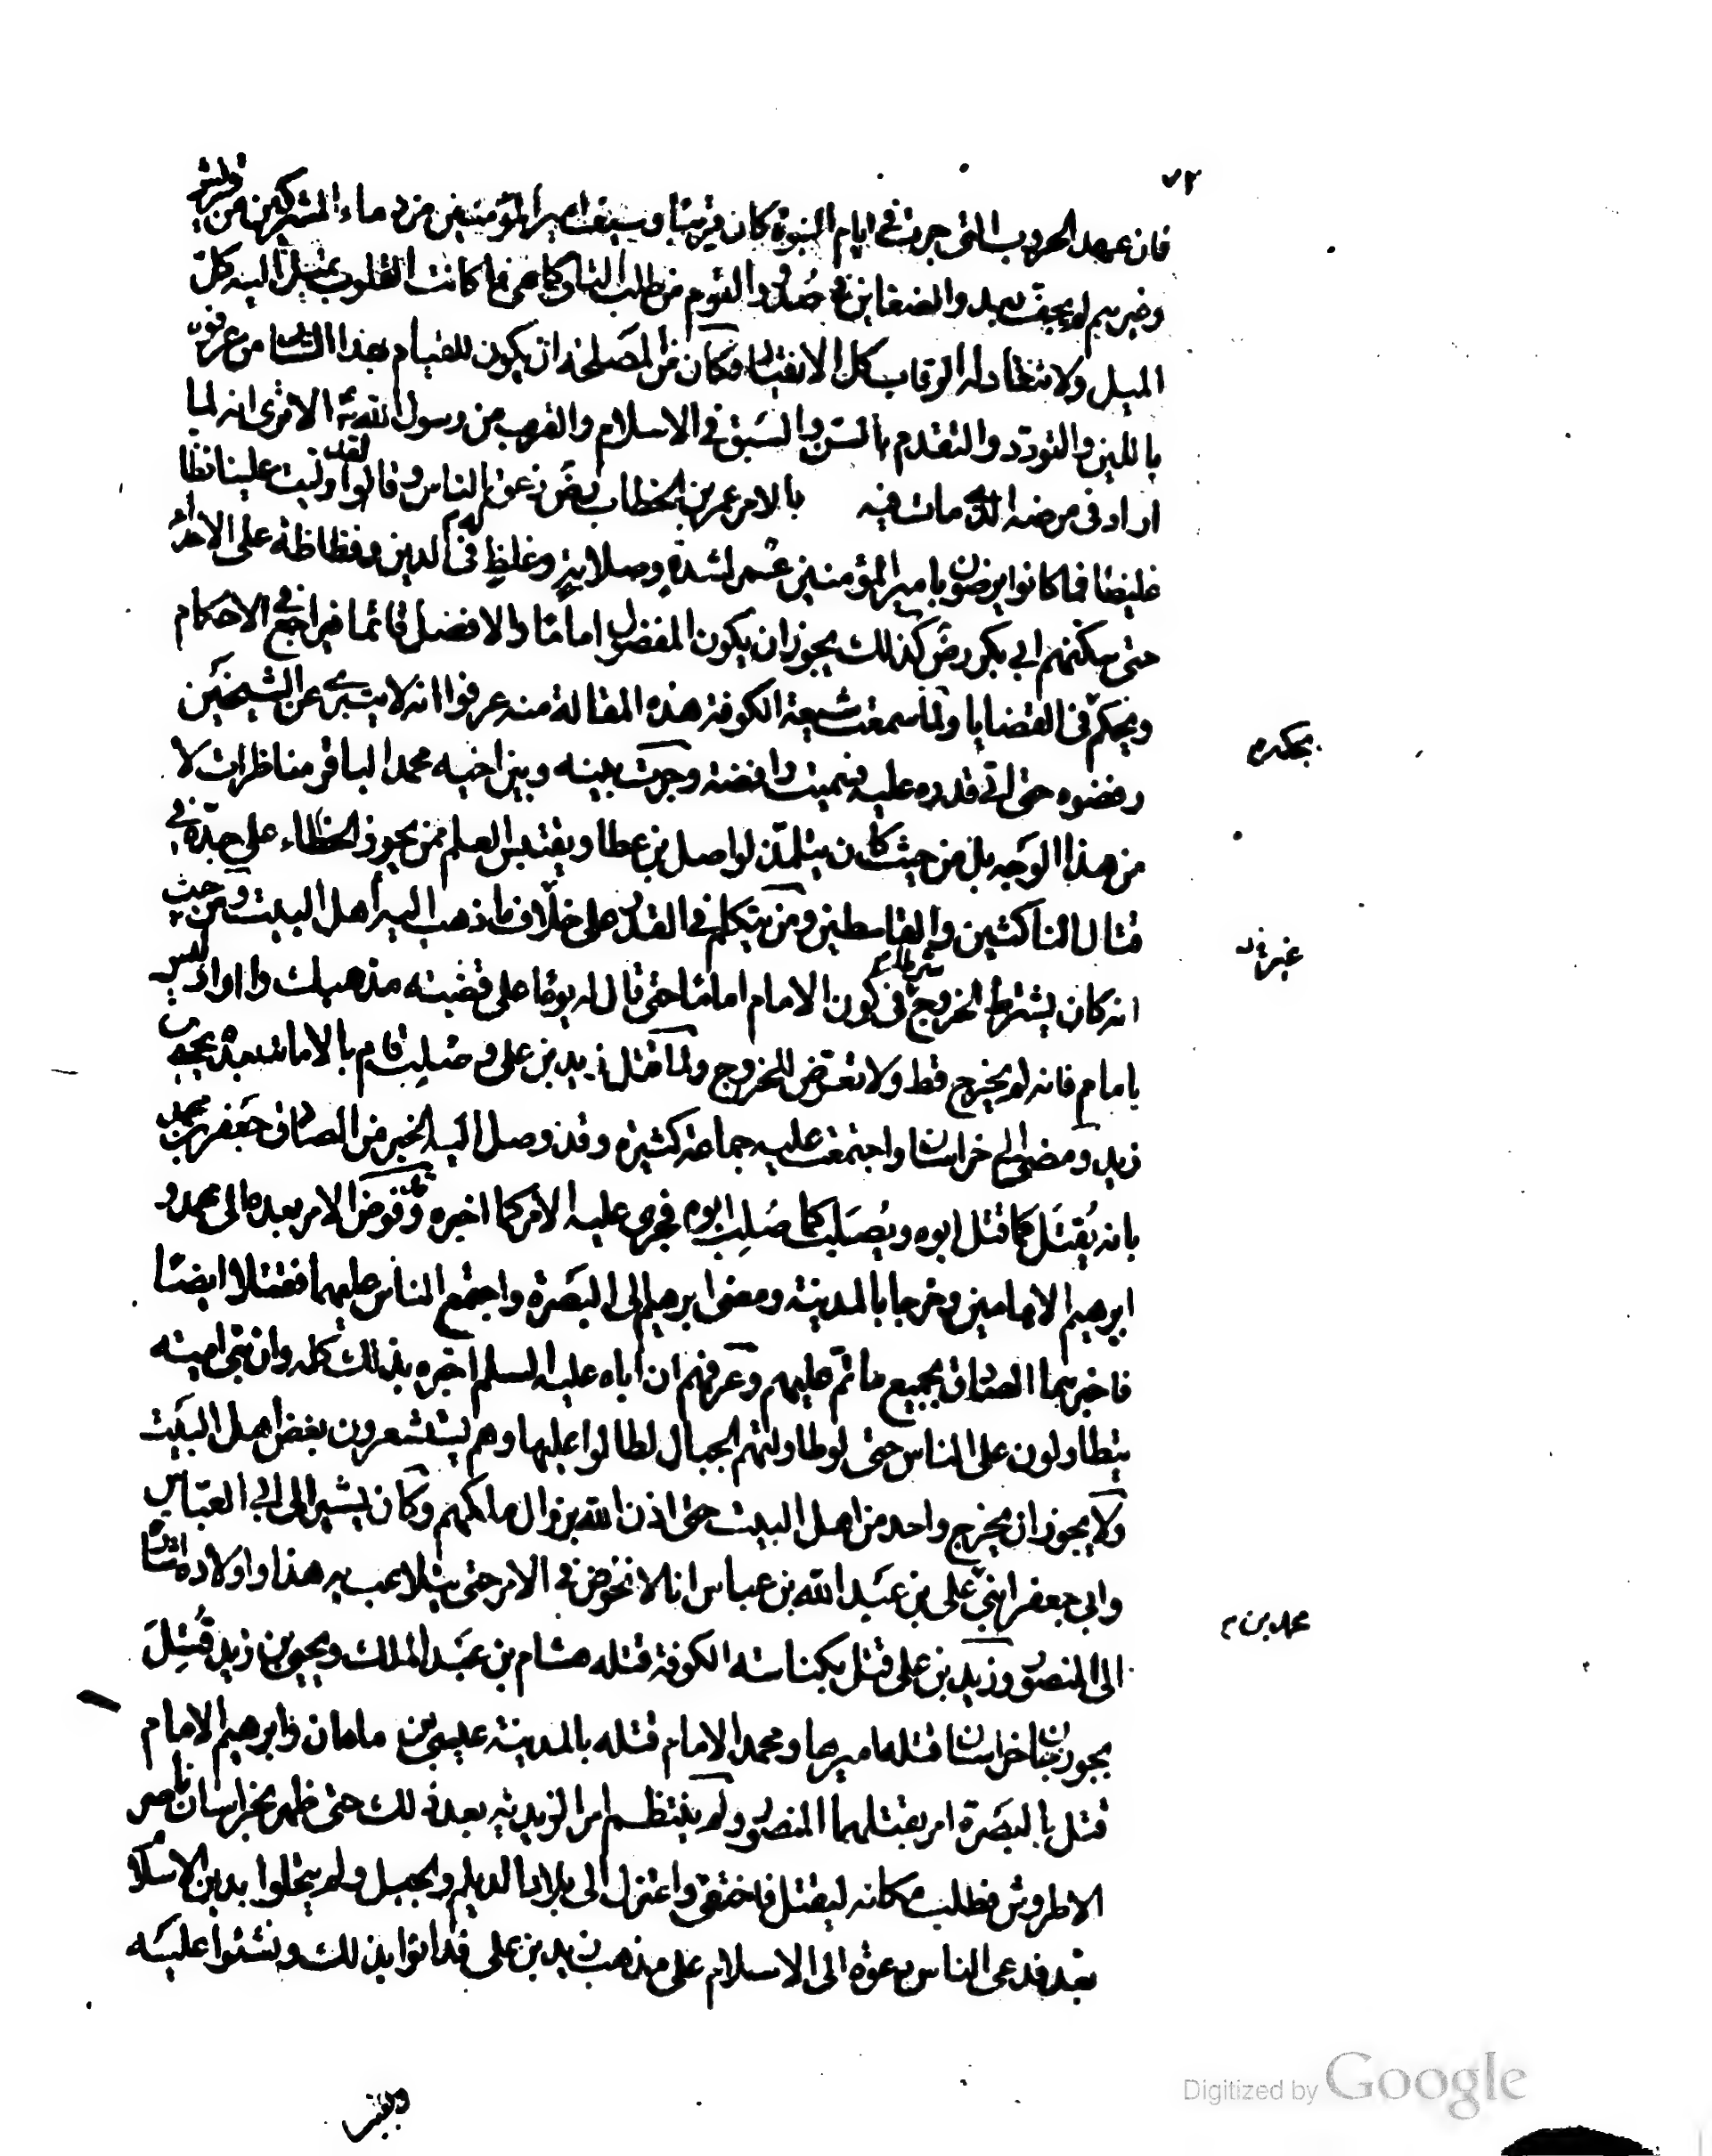 ٧٢
فان عهد الحروب التى جرت فى ايام النبوة كان قريبا وسيف امير المؤمنين من دماء المشركين من قريش
وغيرهم لم يجف بعد والضغاين فى صدور القوم من طلب الثار كما هى فما كانت القلوب تميل اليه كل
الميل ولا تنقاد له الرقاب كل الانقياد فكان من المصلحة ان يكون للقيام بهذا الشان من عرفوه
باللين والتودد والتقدم بالسن والسبق فى الاسلام والقرب من رسول الله الا ترى انه لما
اراد فى مرضه الذى مات فيه بالامر عمر بن الخطاب زعق الناس وقالوا لقد وليت علينا فظا
غليضا فما كانوا يرضون بامير المؤمنين عمر لشدة وصلابة وغلظ له فى الدين وفظاظة على الاعداء
حتى سكنهم ابى بكر رض كذلك يجوز ان يكون المفضول اماما والافضل قائما فيراجع فى الاحكام
ويحكم فى القضايا ولما سمعت شيعة الكوفة هذه المقالة منه عرفوا انه لا يتبرى عن الشيخين
رفضوه حتى اتى قدره عليه فسميت رافضة وجرت بينه وبين اخيه محمد الباقر مناظرات لا
من هذا الوجه بل من حيث كان يتلمذ لواصل بن عطا ويقتبس العلم ممن يجوز الخطاء على جده فى
قتال الناكثين والقاسطين ومن يتكلم فى القدر على خلاف ما ذهب اليه اهل البيت ومن حيث
انه كان يشترط الخروج شرطا فى كون الامام اماما حتى قال له يوما على قضيته مذهبك والدك ليس
بامام فانه لم يخرج قط ولا تعرض للخروج ولما قتل زيد بن على وصلب قام بالامامة بعده يحيى بن
زيد ومضى الى خراسان واجتمعت عليه جماعة كثيرة وقد وصل اليه الخبر من الصادق جعفر بن محمد
بانه يقتل كما قتل ابوه ويصلب كما صلب ابوه فجرى عليه الامر كما اخبره وقد فوض الامر بعده الى محمد و
ابرهيم الامامين وخرجا بالمدينة ومضى ابرهيم الى البصرة واجتمع الناس عليهما فقتلا ايضا
فاخبرهما الصادق بجميع ما تم عليهم وعرفهم ان اباه عليه السلم اخبره بذلك كله وان بنى امية
يتطاولون على الناس حتى لو طاولتهم الجبال لطالوا عليها وهم يستشعرون بغض اهل البيت
ولا يجوز ان يخرج واحد من اهل البيت حتى اذن الله بزوال ملكهم وكان يشير الى ابى العباس
وابى جعفر ابنى على بن عبد الله بن عباس انا لا نخوض فى الامر حتى يتلاعب به هذا واولاده اشارة
الى المنصور وزيد بن على قتل بكناسة الكوفة قتله هشام بن عبد الملك ويحيى بن زيد قتل
بجوزجان خراسان قتله اميرها ومحمد الامام قتله بالمدينة عيسى بن ماهان وابرهيم الامام
قتل بالبصرة امر بقتلهما المنصور ولم ينتظم امر الزيدية بعد ذلك حتى ظهر بخراسان ناصر
الاطروش فطلب مكانه ليقتل فاختفى واعتزل الى بلاد الديلم والجبل ولم يتحلوا بدين الاسلام
بعد فدعى الناس دعوة الى الاسلام على مذهب زيد بن على فدانوا بذلك ونشئوا عليه
محمد بن م